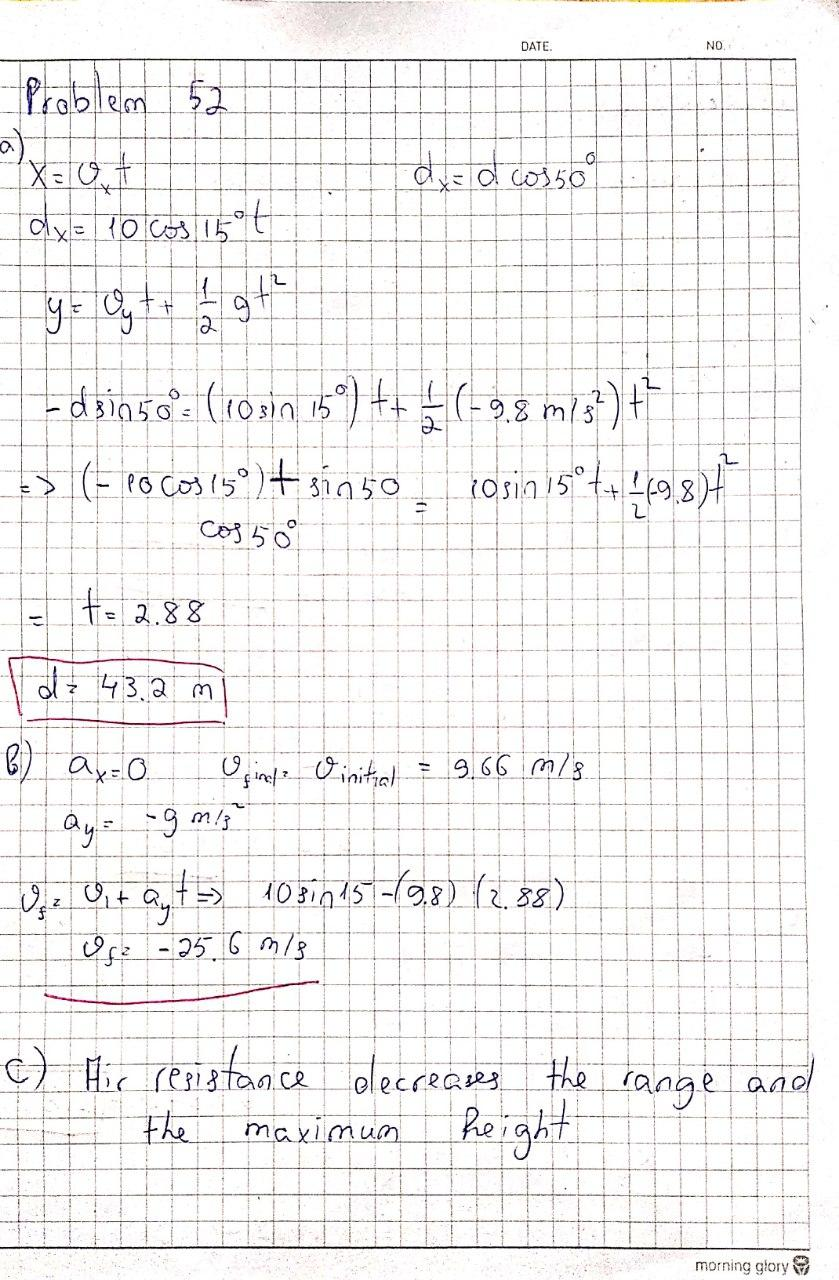 DATE. NO.
Problem 52
a)
x = v_x t d_x = d cos 50°
d_x = 10 cos 15° t
y = v_y t + 1/2 g t²
- d sin 50° = (10 sin 15°) t + 1/2 (-9.8 m/s²) t²
=> (- 10 cos 15°) t sin 50 / cos 50° = 10 sin 15° t + 1/2 (-9.8) t²
= t = 2.88
d = 43.2 m
b) a_x = 0 v_final = v_initial = 9.66 m/s
a_y = -g m/s²
v_f = v_i + a_y t => 10 sin 15 - (9.8) (2.88)
v_f = -25.6 m/s
c) Air resistance decreases the range and
the maximum height
morning glory